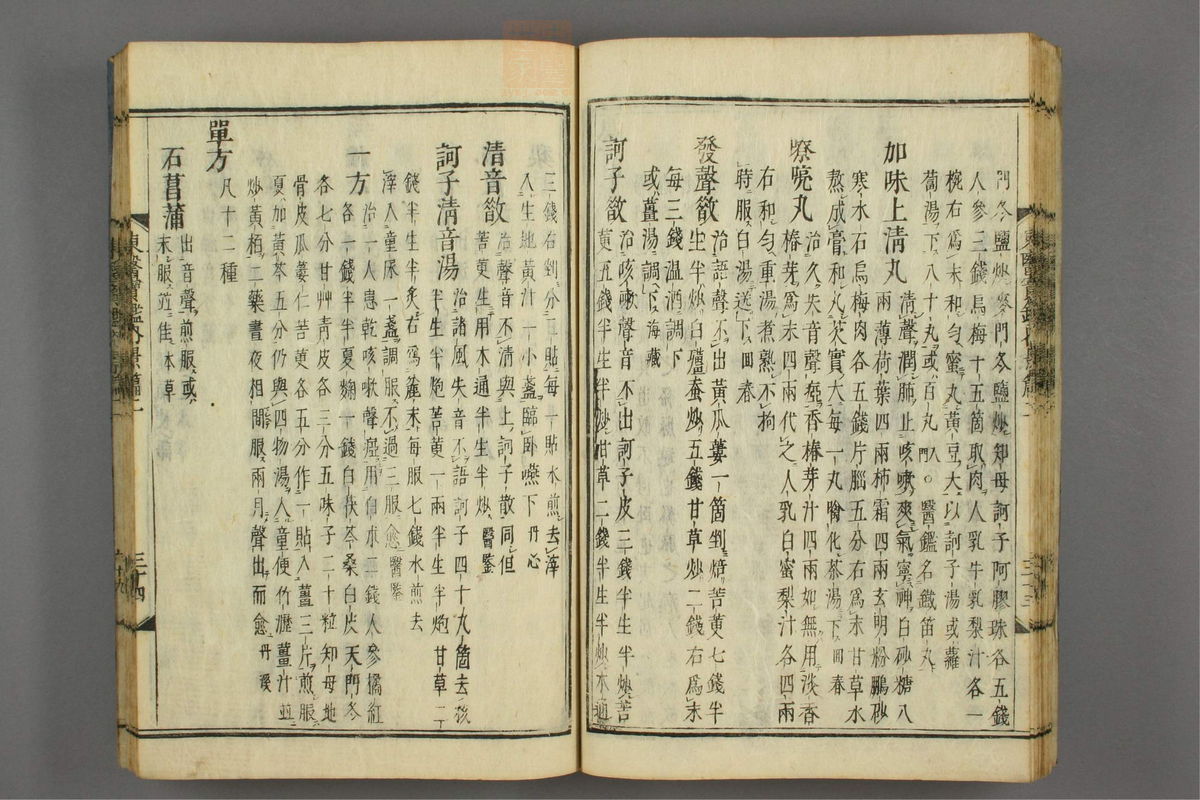 門冬鹽炒麥門冬鹽炒知母訶子阿膠珠各五錢
人參三錢烏梅十五箇取肉人乳牛乳梨汁各一
椀右爲末和勻蜜丸黃豆大以訶子湯或蘿
蔔湯下八十丸或百丸入門○醫鑑名鐵笛丸
加味上清丸 清聲潤肺止咳嗽爽氣寧神白砂糖八
兩薄荷葉四兩柿霜四兩玄明粉鵬砂
寒水石烏梅肉各五錢片腦五分右爲末甘草水
熬成膏和丸芡實大每一丸噙化茶湯下回春
嘹喨丸 治久失音聲瘂香椿芽汁四兩如無用淡香
椿芽爲末四兩代之人乳白蜜梨汁各四兩
右和勻重湯煮熟不拘
時服白湯送下回春
發聲散 治語聲不出黃瓜蔞一箇剉焙苦莄七錢半
生半炒白殭蚕炒五錢甘草炒二錢右爲末
每三錢溫酒調下
或薑湯調下海藏
訶子散 治咳嗽聲音不出訶子皮三錢半生半炒苦
莄五錢半生半炒甘草二錢半生半炒木通
三錢右剉分二貼每一貼水煎去滓
入生地黃汁一小盞臨卧嚥下丹心
清音散 治聲音不清與上訶子散同但
苦莄生用木通半生半炒醫鑒
訶子清音湯 治諸風失音不語訶子四十九箇去核
半生半炮苦莄一兩半生半炮甘草二
錢半生半炙右爲麄末每服七錢水煎去
滓入童尿一盞調服不過三服愈醫鑒
一方 治一人患乾咳嗽聲瘂用白朮二錢人參橘紅
各一錢半半夏麴一錢白茯苓桑白皮天門冬
各七分甘艸靑皮各三分五味子二十粒知母地
骨皮瓜蔞仁苦莄各五分作一貼入薑三片煎服
夏加黃芩五分仍與四物湯入童便竹瀝薑汁並
炒黃栢二藥晝夜相間服兩月聲出而愈丹溪
單方 凡十二種
石菖蒲 出音聲煎服或
末服竝佳本草
東醫寶鑑內景篇二
三十四